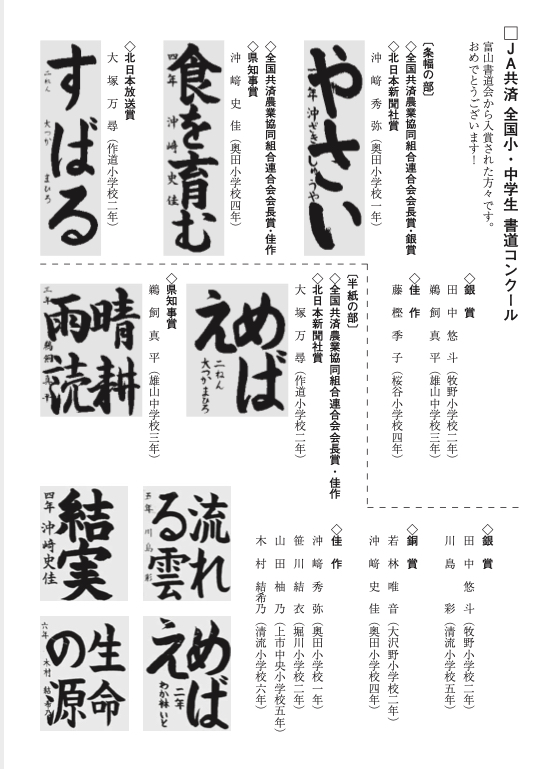 □JA共済 全国小・中学生 書道コンクール
富山書道会から入賞された方々です。
おめでとうございます！
〔条幅の部〕
◇全国共済農業協同組合連合会会長賞・銀賞
◇北日本新聞社賞
沖﨑秀弥（奥田小学校一年）
やさい
一年 沖ざきしゅうや
◇全国共済農業協同組合連合会会長賞・佳作
◇県知事賞
沖﨑史佳（奥田小学校四年）
食を育む
四年 沖﨑史佳
◇北日本放送賞
大塚万尋（作道小学校二年）
すばる
二ねん 大つか まひろ
◇銀賞
田中悠斗（牧野小学校二年）
鵜飼真平（雄山中学校三年）
◇佳作
藤樫季子（桜谷小学校四年）
〔半紙の部〕
◇全国共済農業協同組合連合会会長賞・佳作
◇北日本新聞社賞
大塚万尋（作道小学校二年）
めばえ
二ねん 大つかまひろ
◇県知事賞
鵜飼真平（雄山中学校三年）
晴耕雨読
三年 鵜飼真平
◇銀賞
田中悠斗（牧野小学校二年）
川島彩（清流小学校五年）
◇銅賞
若林唯音（大沢野小学校二年）
沖﨑史佳（奥田小学校四年）
◇佳作
沖﨑秀弥（奥田小学校一年）
笹川結衣（堀川小学校二年）
山田柚乃（上市中央小学校五年）
木村結希乃（清流小学校六年）
流れる雲
五年 川島彩
結実
四年 沖﨑史佳
めばえ
二年 わか林いと
生命の源
六年 木村結希乃